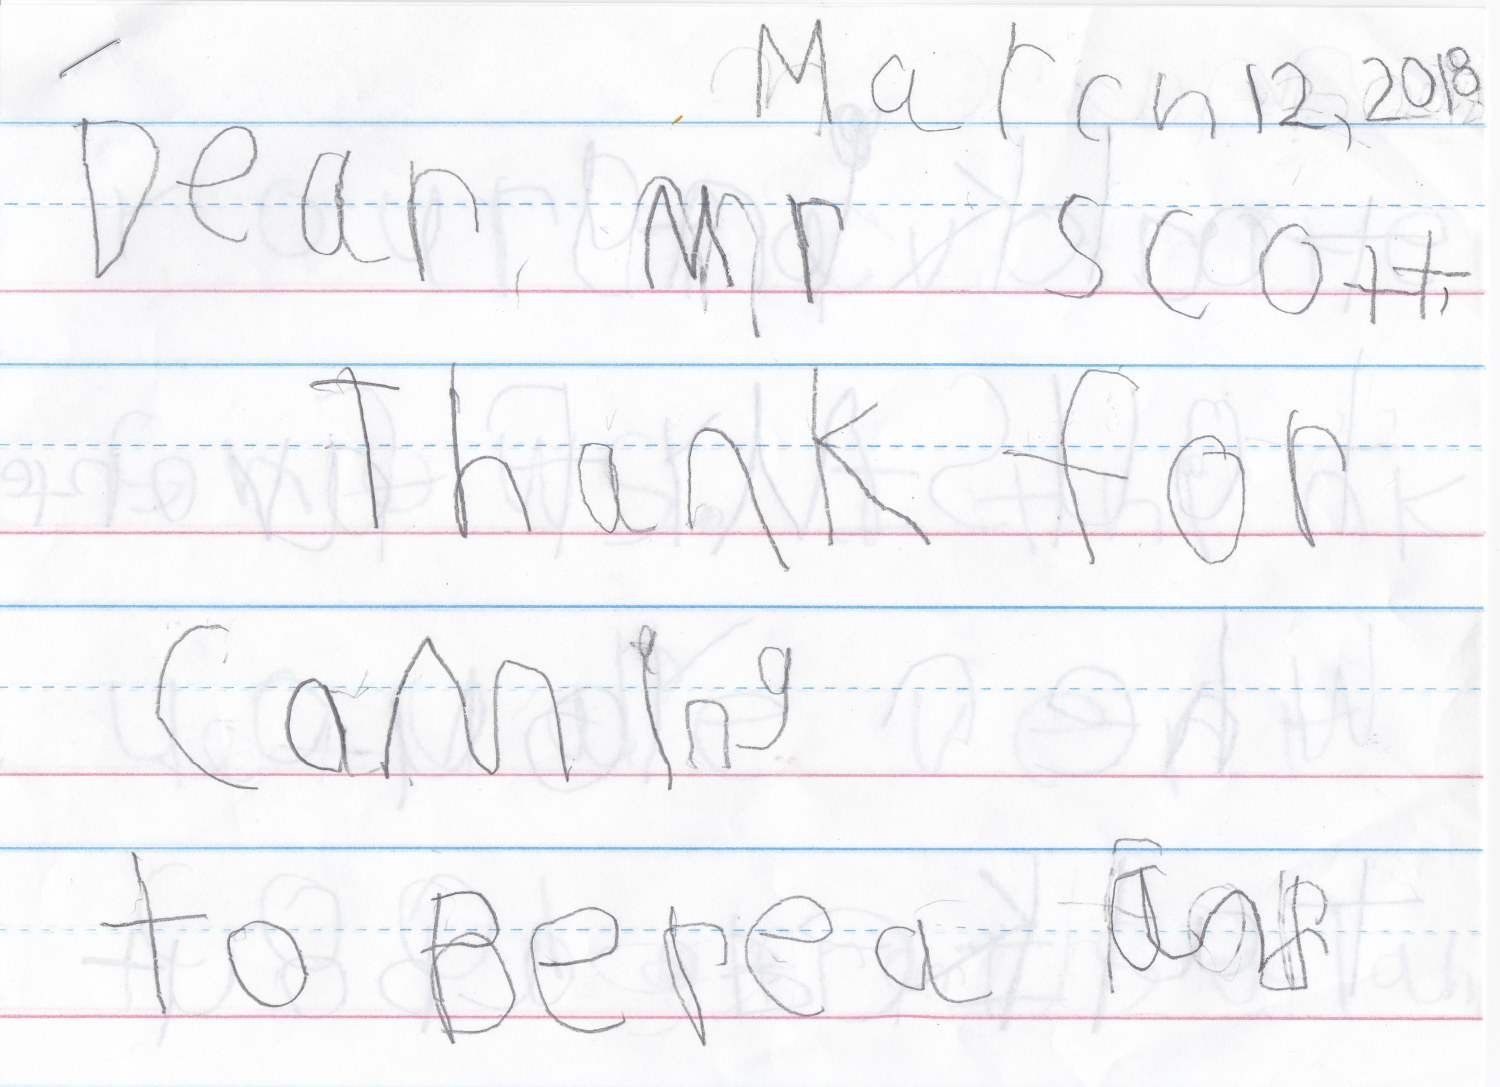 March 12, 2018
Dear, Mr Scott,
Thank for
Camning
to Berea and